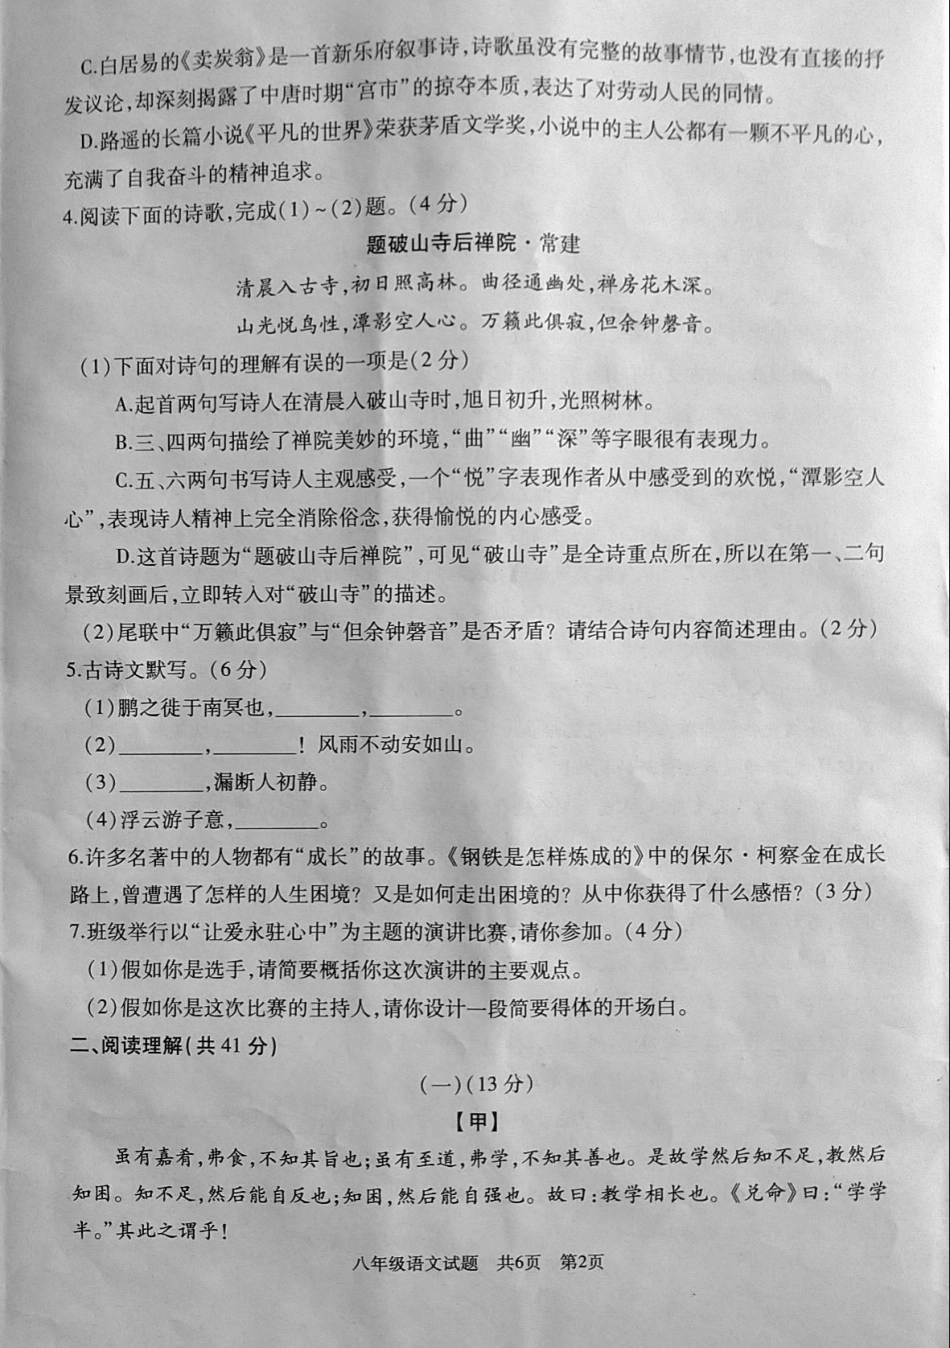 C.白居易的《卖炭翁》是一首新乐府叙事诗,诗歌虽没有完整的故事情节,也没有直接的抒
发议论,却深刻揭露了中唐时期“宫市”的掠夺本质,表达了对劳动人民的同情。
D.路遥的长篇小说《平凡的世界》荣获茅盾文学奖,小说中的主人公都有一颗不平凡的心,
充满了自我奋斗的精神追求。
4.阅读下面的诗歌,完成(1)~(2)题。(4分)
题破山寺后禅院·常建
清晨入古寺,初日照高林。曲径通幽处,禅房花木深。
山光悦鸟性,潭影空人心。万籁此俱寂,但余钟磬音。
(1)下面对诗句的理解有误的一项是(2分)
A.起首两句写诗人在清晨入破山寺时,旭日初升,光照树林。
B.三、四两句描绘了禅院美妙的环境,“曲”“幽”“深”等字眼很有表现力。
C.五、六两句书写诗人主观感受,一个“悦”字表现作者从中感受到的欢悦,“潭影空人
心”,表现诗人精神上完全消除俗念,获得愉悦的内心感受。
D.这首诗题为“题破山寺后禅院”,可见“破山寺”是全诗重点所在,所以在第一、二句
景致刻画后,立即转入对“破山寺”的描述。
(2)尾联中“万籁此俱寂”与“但余钟磬音”是否矛盾?请结合诗句内容简述理由。(2分)
5.古诗文默写。(6分)
(1)鹏之徙于南冥也,________,________。
(2)________,________!风雨不动安如山。
(3)________,漏断人初静。
(4)浮云游子意,________。
6.许多名著中的人物都有“成长”的故事。《钢铁是怎样炼成的》中的保尔·柯察金在成长
路上,曾遭遇了怎样的人生困境?又是如何走出困境的?从中你获得了什么感悟?(3分)
7.班级举行以“让爱永驻心中”为主题的演讲比赛,请你参加。(4分)
(1)假如你是选手,请简要概括你这次演讲的主要观点。
(2)假如你是这次比赛的主持人,请你设计一段简要得体的开场白。
二、阅读理解(共41分)
(一)(13分)
【甲】
虽有嘉肴,弗食,不知其旨也;虽有至道,弗学,不知其善也。是故学然后知不足,教然后
知困。知不足,然后能自反也;知困,然后能自强也。故曰:教学相长也。《兑命》曰:“学学
半。”其此之谓乎!
八年级语文试题 共6页 第2页